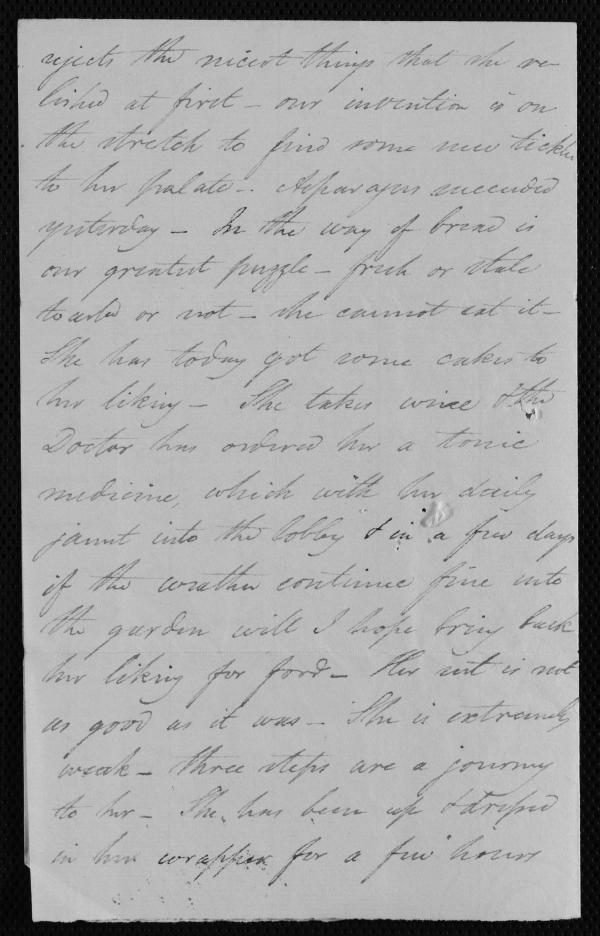 rejects the nicest things that she re-
lished at first - our invention is on
the stretch to find some new tickler
to her palate -. Asparagus succeeded
yesterday - In the way of bread is
our greatest puzzle - fresh or stale
toasted or not - she cannot eat it -
She has today got some cakes to
her liking - She takes wine & the
Doctor has ordered her a tonic
medicine, which with her daily
jaunt into the lobby & in a few days
if the weather continue fine into
the garden will I hope bring back
her liking for food - Her rest is not
as good as it was - She is extremely
weak - three steps are a journey
to her - She has been up & dressed
in her wrapper for a few hours